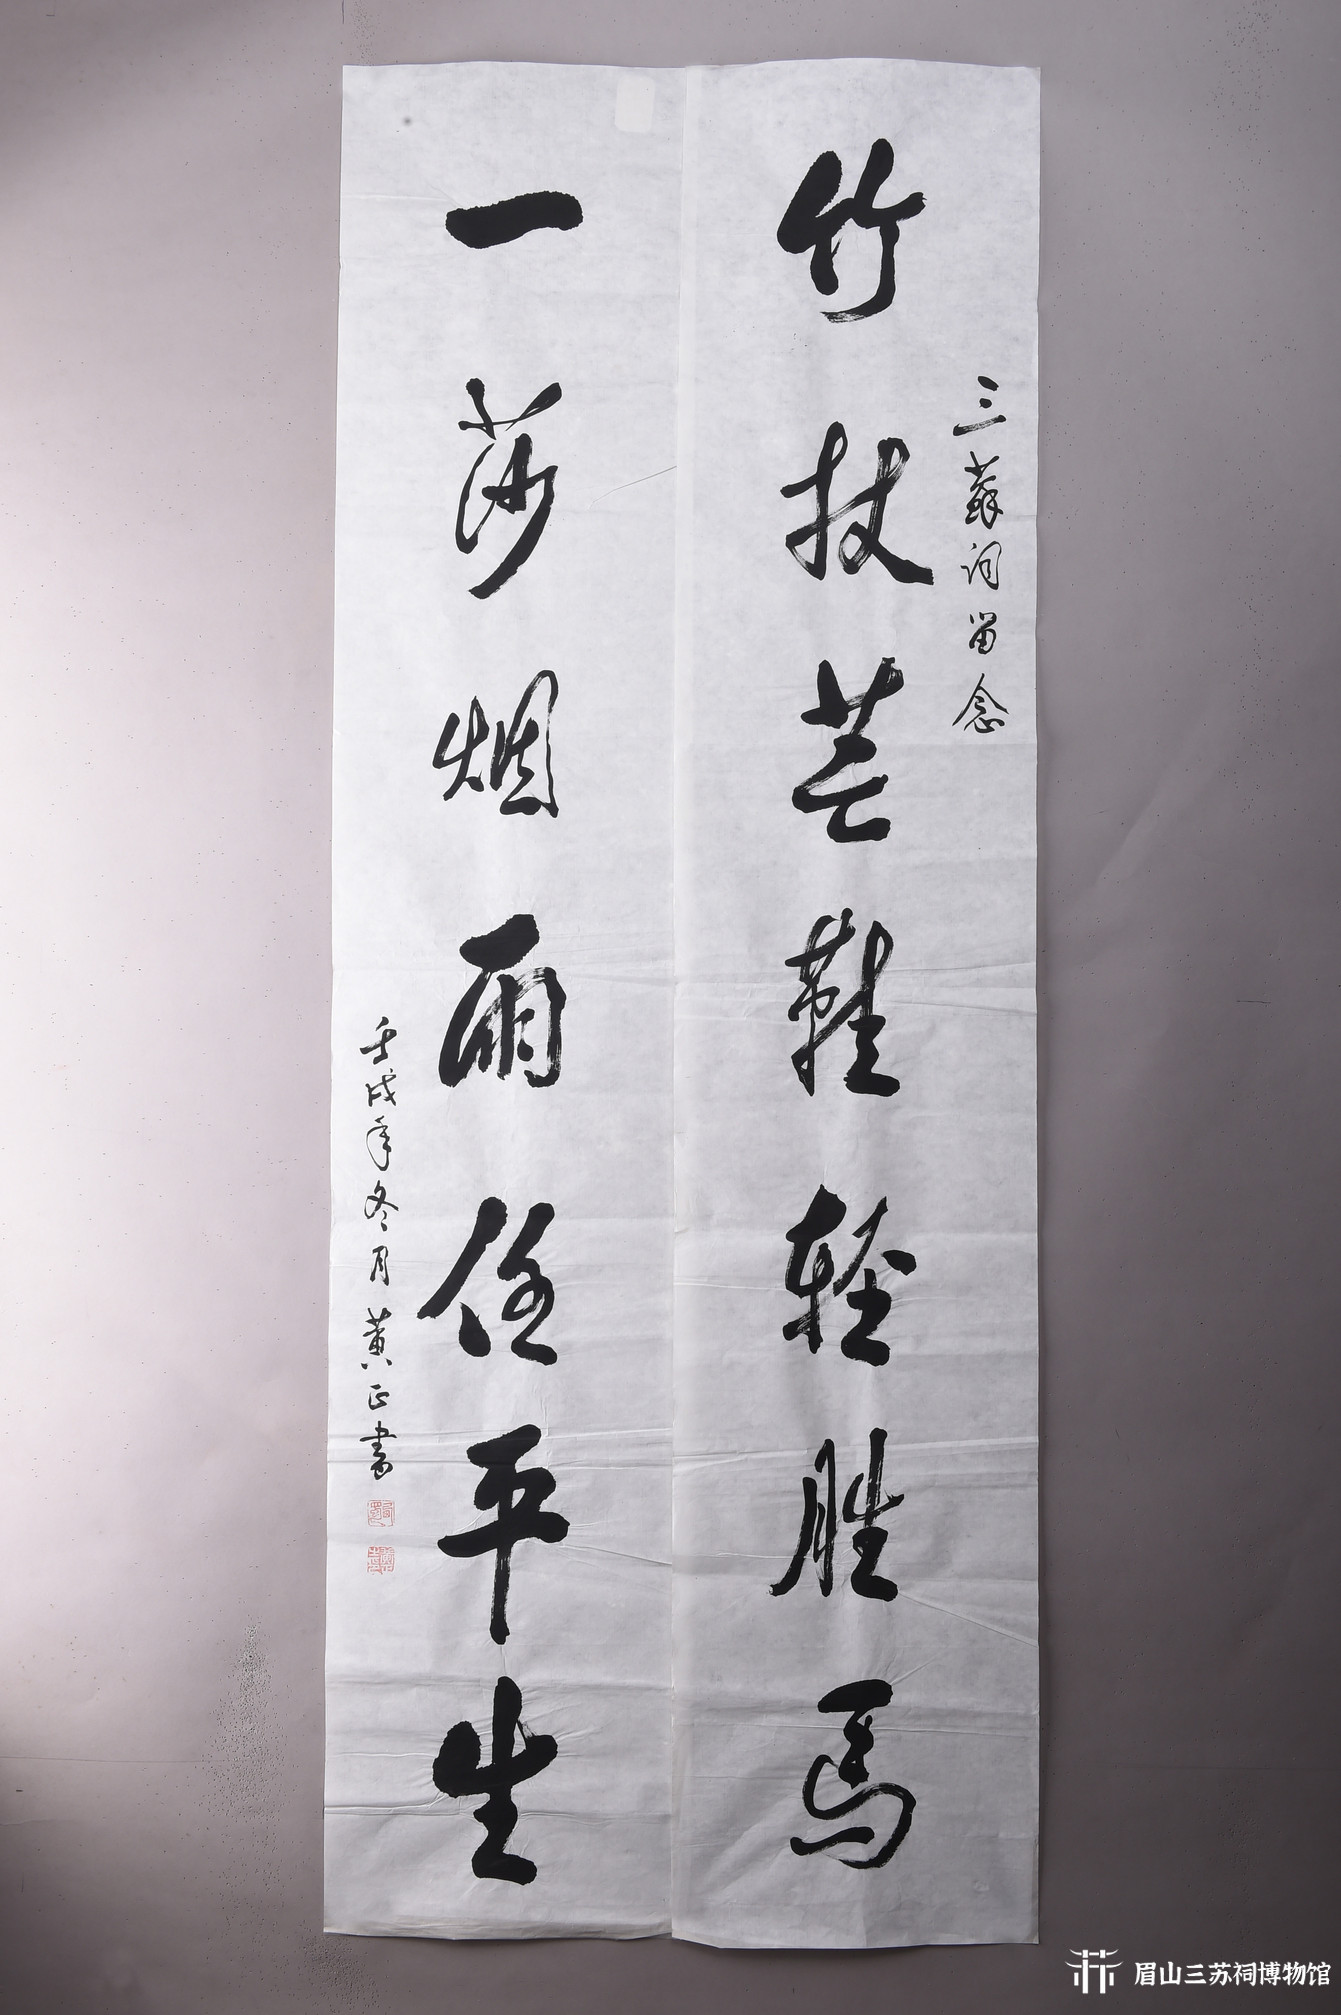 三蘇词留念
竹杖芒鞋轻胜马
一莎烟雨任平生
壬戌年冬月黄正書
眉山三苏祠博物馆